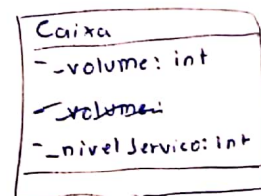 Caixa
- _volume: int
- _nivelServico: int